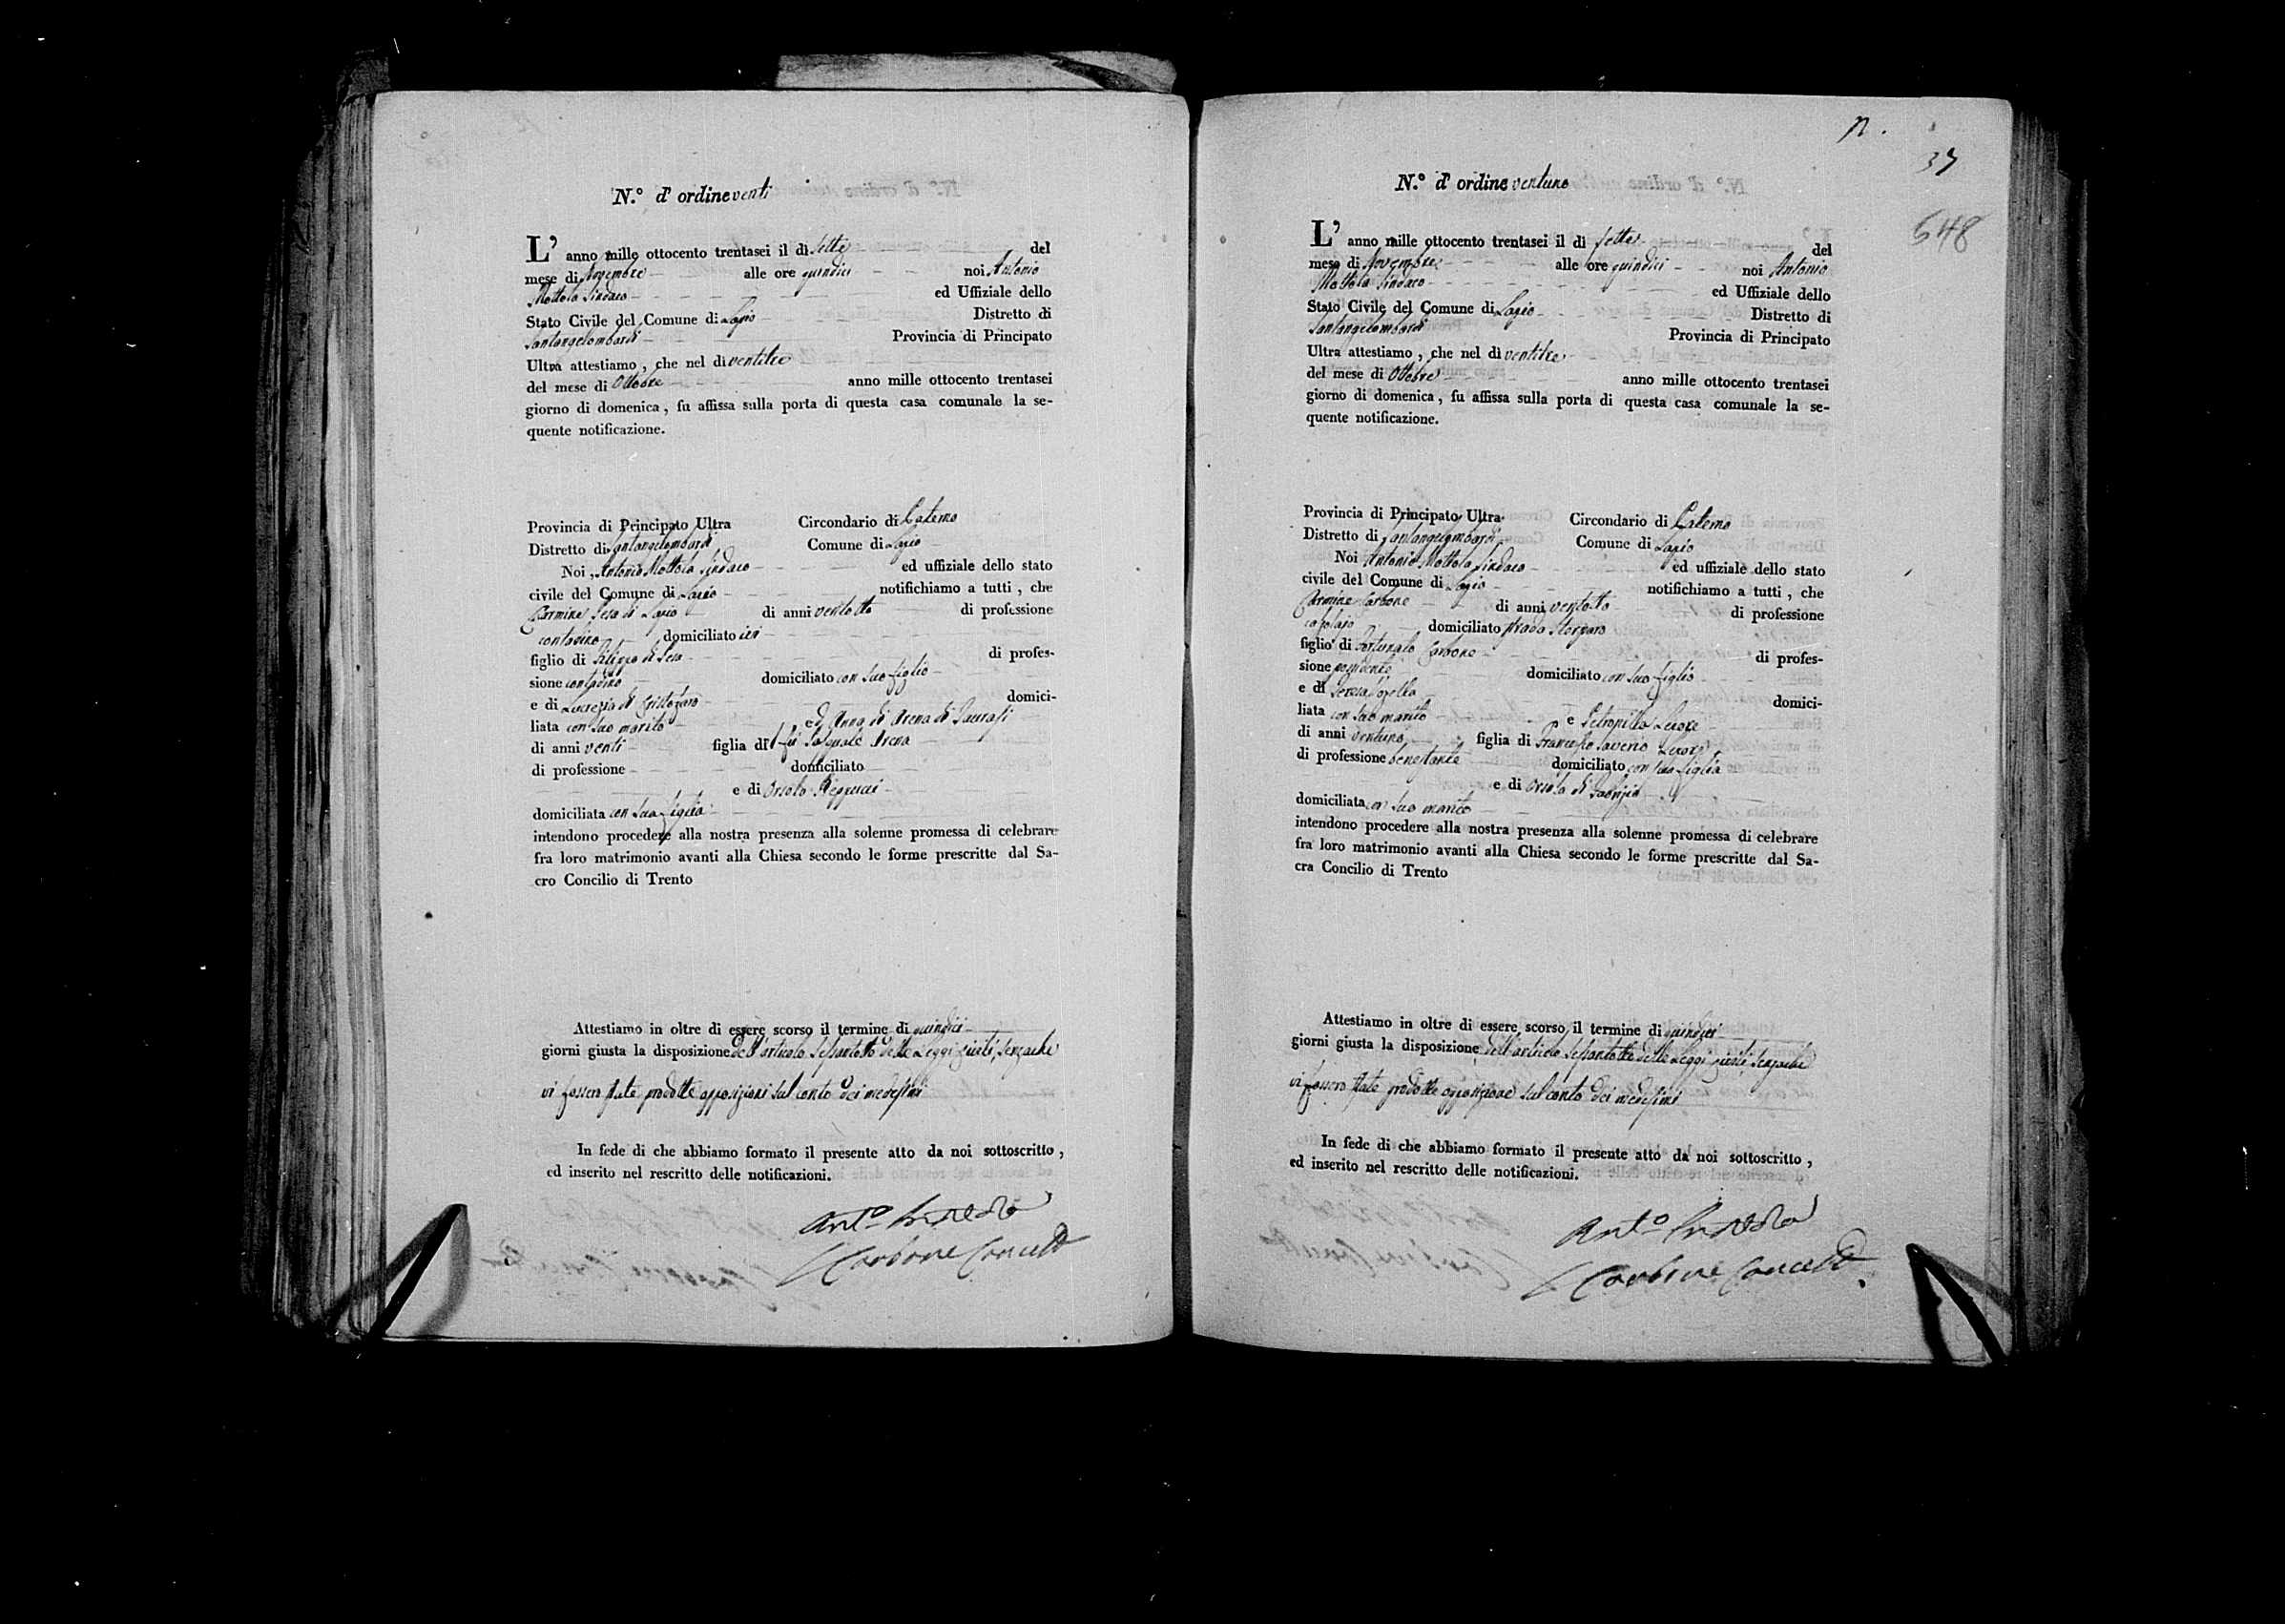 N.º d' ordine venti
L' anno mille ottocento trentasei il dì sette del
mese di Novembre alle ore quindici noi Antonio
Mottola Sindaco ed Uffiziale dello
Stato Civile del Comune di Lapio Distretto di
Santangelombardi Provincia di Principato
Ultra attestiamo , che nel dì ventitre
del mese di Ottobre anno mille ottocento trentasei
giorno di domenica , fu affissa sulla porta di questa casa comunale la se-
quente notificazione.
Provincia di Principato Ultra Circondario di Paterno
Distretto di Santangelombardi Comune di Lapio
Noi Antonio Mottola Sindaco ed uffiziale dello stato
civile del Comune di Lapio notifichiamo a tutti , che
Carmine di Lapio di anni ventotto di professione
contadino domiciliato ivi
figlio di Filippo di profes-
sione contadino domiciliato con suo figlio
e di Lucrezia di Cristofaro domici-
liata con suo marito ed Anna di Arena di Taurasi
di anni venti figlia di fu Pasquale Arena
di professione domiciliato
e di Orsola
domiciliata con sua figlia
intendono procedere alla nostra presenza alla solenne promessa di celebrare
fra loro matrimonio avanti alla Chiesa secondo le forme prescritte dal Sa-
cro Concilio di Trento
Attestiamo in oltre di essere scorso il termine di quindici
giorni giusta la disposizione dell'articolo sessantotto delle Leggi civili, senzache
vi fossero state prodotte opposizioni sul conto dei medesimi
In fede di che abbiamo formato il presente atto da noi sottoscritto ,
ed inserito nel rescritto delle notificazioni.
Ant.o Mottola
Carbone
N.º d' ordine ventuno
37
548
L' anno mille ottocento trentasei il dì sette del
mese di Novembre alle ore quindici noi Antonio
Mottola Sindaco ed Uffiziale dello
Stato Civile del Comune di Lapio Distretto di
Santangelombardi Provincia di Principato
Ultra attestiamo , che nel dì ventitre
del mese di Ottobre anno mille ottocento trentasei
giorno di domenica , fu affissa sulla porta di questa casa comunale la se-
quente notificazione.
Provincia di Principato Ultra Circondario di Paterno
Distretto di Santangelombardi Comune di Lapio
Noi Antonio Mottola Sindaco ed uffiziale dello stato
civile del Comune di Lapio notifichiamo a tutti , che
Carmine Carbone di anni ventotto di professione
domiciliato strada
figlio di Fortunato Carbone di profes-
sione possidente domiciliato con suo figlio
e di Teresa domici-
liata con suo marito e Petronilla
di anni ventuno figlia di Francesco Saverio
di professione benestante domiciliato con sua figlia
e di Orsola di Fabrizio
domiciliata con suo marito
intendono procedere alla nostra presenza alla solenne promessa di celebrare
fra loro matrimonio avanti alla Chiesa secondo le forme prescritte dal Sa-
cra Concilio di Trento
Attestiamo in oltre di essere scorso il termine di quindici
giorni giusta la disposizione dell'articolo sessantotto delle Leggi civili, senzache
vi fossero state prodotte opposizione sul conto dei medesimi
In fede di che abbiamo formato il presente atto da noi sottoscritto ,
ed inserito nel rescritto delle notificazioni.
Ant.o Mottola
Carbone